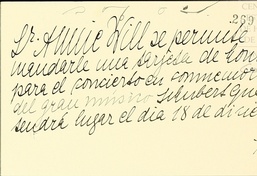 CEN
269
Dr. Annie Will se permite
mandarle una tarjeta de hon
para el concierto en conmemor
del gran músico Schubert que
tendrá lugar el dia 18 de dicie